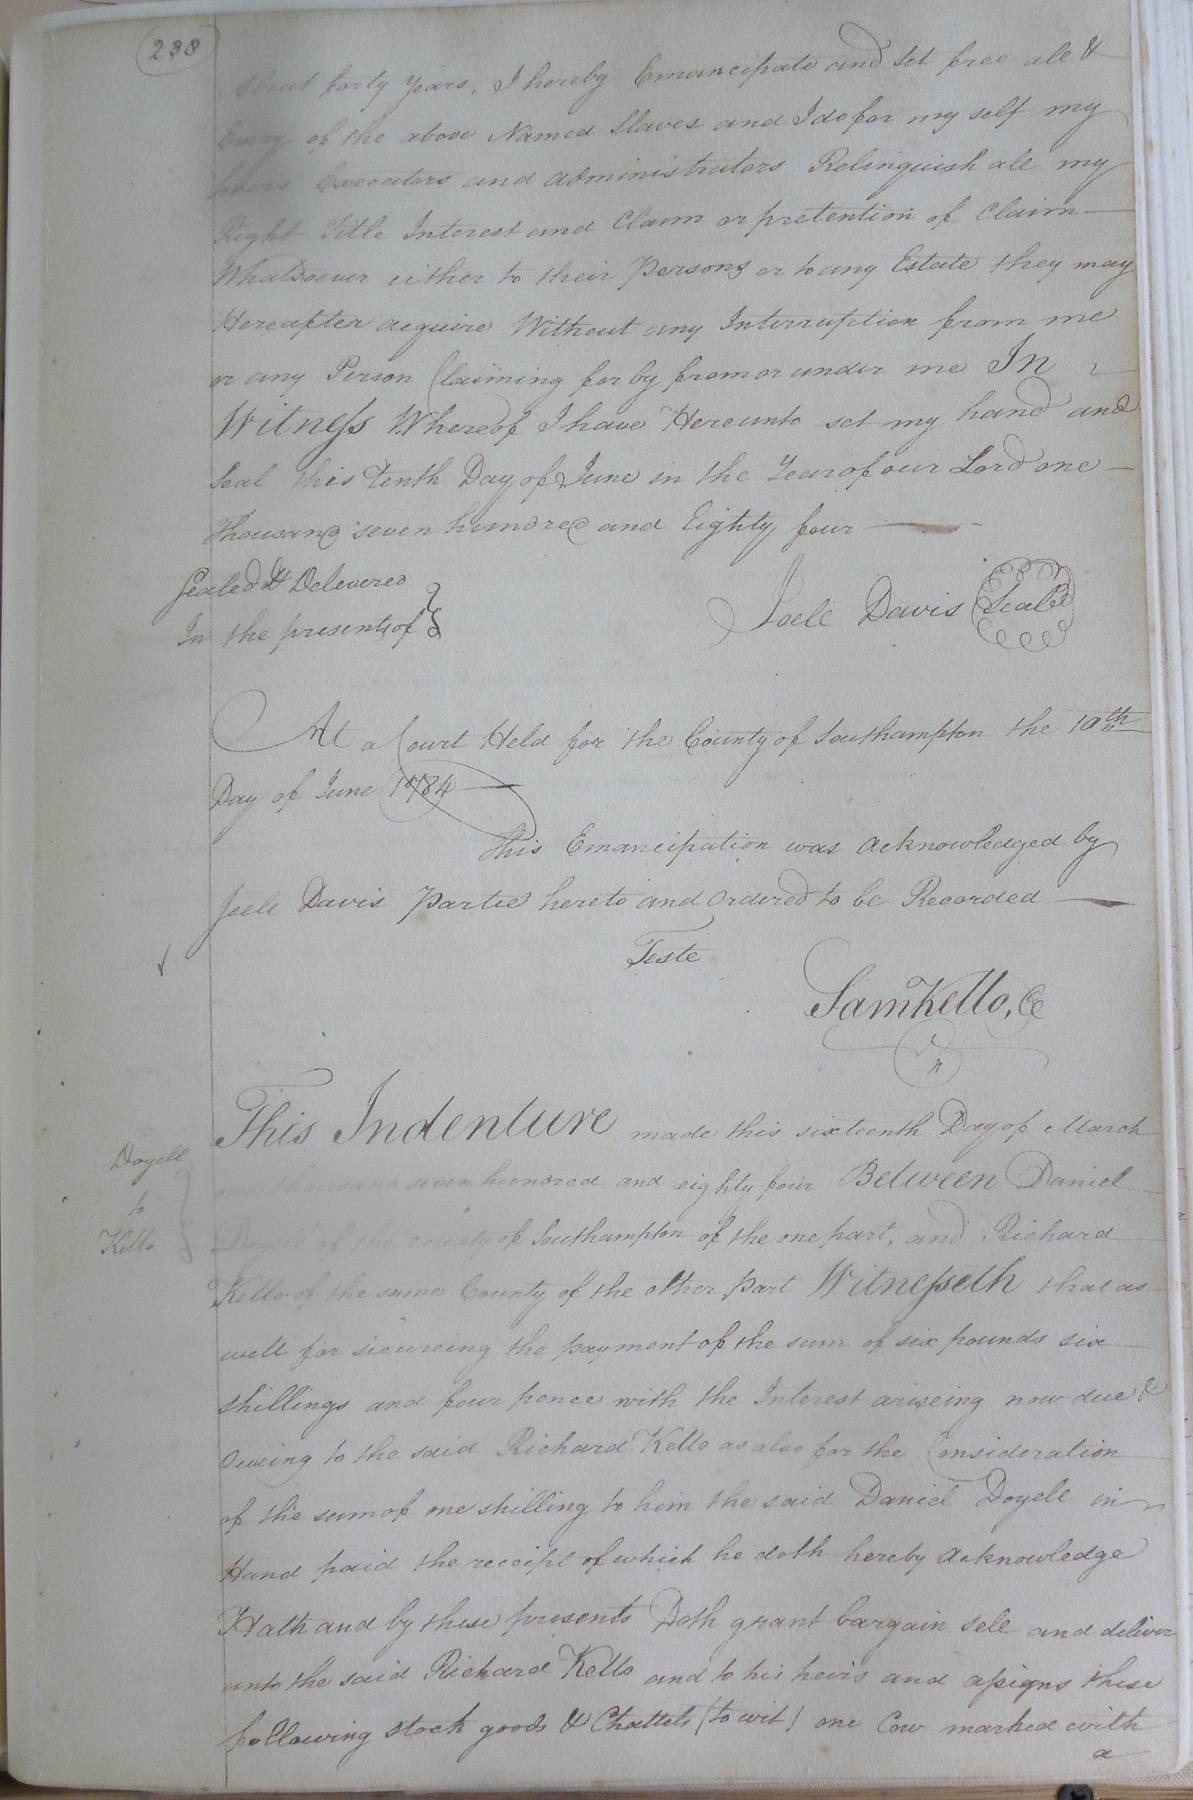 238
About forty years, I hereby Emancipate and set free all &
Every of the above Named Slaves and I do for my self my
heirs Executors and administrators Relinquish all my
Right Title Interest and Claim or pretention of Claim
Whatsoever either to their Persons or to any Estate they may
Hereafter acquire Without any Interruption from me
or any Person Claiming for by from or under me In
Witness Whereof I have Hereunto set my hand and
Seal this tenth Day of June in the Year of our Lord one
Thousand seven hundred and Eighty four
Sealed & Delivered
In the presents of }
Joell Davis Seald
At a Court Held for the County of Southampton the 10th
Day of June 1784
This Emancipation was acknowledged by
Joell Davis Partie hereto and Ordered to be Recorded
Teste
Sam Kello, C
This Indenture made this sixteenth Day of March
one thousand seven hundred and eighty four Between Daniel
Doyell
to
Kello
Doyell of the county of Southampton of the one part, and Richard
Kello of the same County of the other part Witnesseth that as
well for sicureing the payment of the sum of six pounds six
shillings and four pence with the Interest ariseing now due &
Oweing to the said Richard Kello as also for the Consideration
of the sum of one shilling to him the said Daniel Doyell in
Hand paid the receipt of which he doth hereby acknowledge
Hath and by these presents Doth grant bargain sell and deliver
unto the said Richard Kello and to his heirs and assigns these
following stock goods & Chattels (to wit) one Cow marked with
a